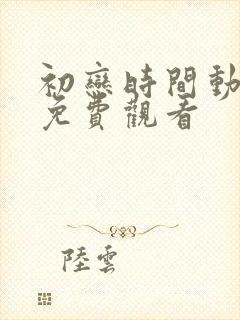 初戀時間動
免費觀看
陸雲